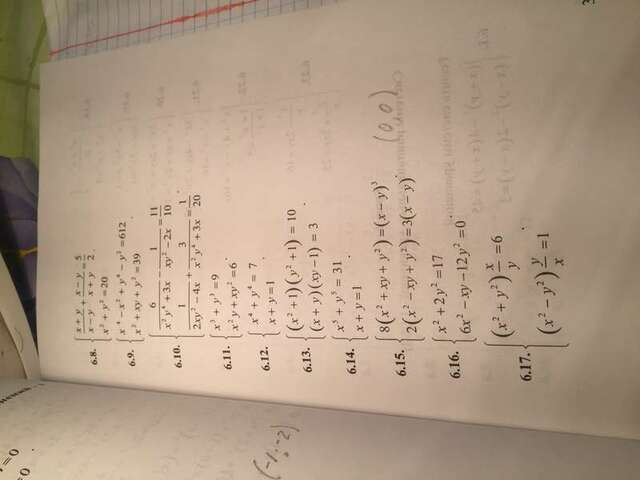 6.8. { (x + y)/(x − y) + (x − y)/(x + y) = 5/2
x² + y² = 20 .
6.9. { x⁴ − x² + y⁴ − y² = 612
x² + xy + y² = 39 .
6.10. { 6/(x²y⁴ + 3x) − 1/(xy² − 2x) = 11/10
1/(2xy² − 4x) + 3/(x²y⁴ + 3x) = 1/20 .
6.11. { x³ + y³ = 9
x²y + xy² = 6 .
6.12. { x⁴ + y⁴ = 7
x + y = 1 .
(-1;-2)
6.13. { (x² + 1)(y² + 1) = 10
(x + y)(xy − 1) = 3 .
6.14. { x⁵ + y⁵ = 31
x + y = 1 .
6.15. { 8(x² + xy + y²) = (x − y)³
2(x² − xy + y²) = 3(x − y) .
(0,0)
6.16. { x² + 2y² = 17
6x² − xy − 12y² = 0 .
6.17. { (x² + y²) x/y = 6
(x² − y²) y/x = 1 .